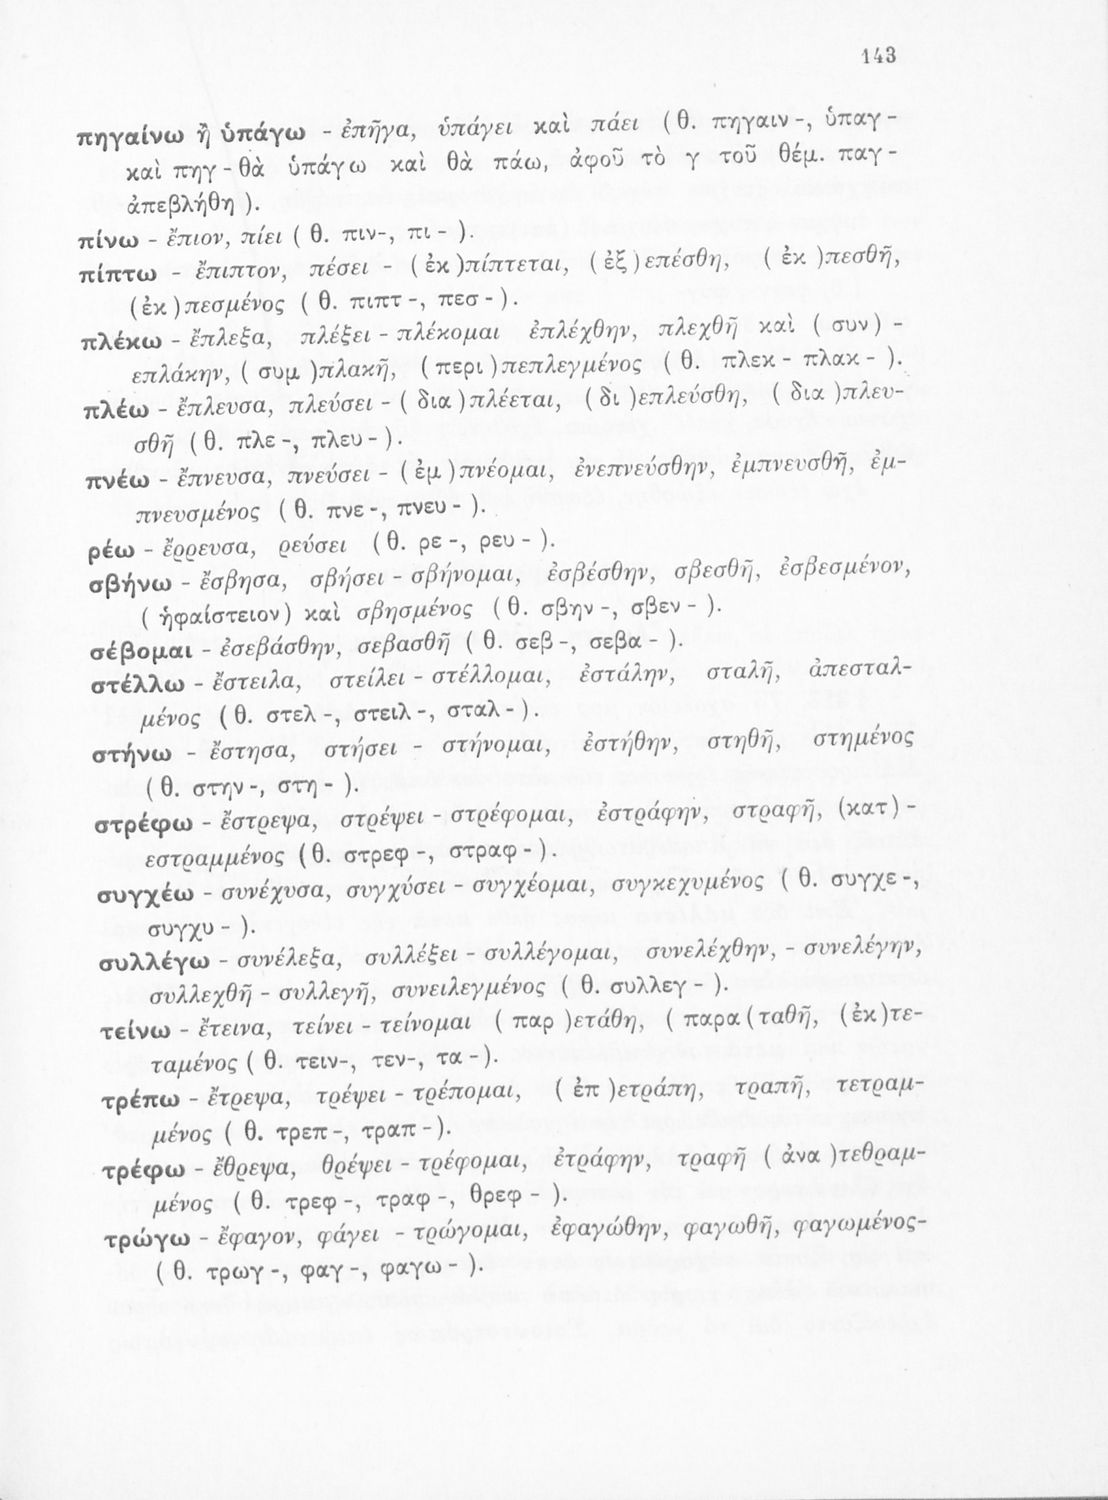 143
πηγαίνω ἢ ὑπάγω - ἐπῆγα, ὑπάγει καὶ πάει (θ. πηγαιν-, ὑπαγ-
καὶ πηγ - θὰ ὑπάγω καὶ θὰ πάω, ἀφοῦ τὸ γ τοῦ θέμ. παγ-
ἀπεβλήθη ).
πίνω - ἔπιον, πίει ( θ. πιν-, πι - ).
πίπτω - ἔπιπτον, πέσει - (ἐκ)πίπτεται, (ἐξ)επέσθη, ( ἐκ )πεσθῆ,
(ἐκ)πεσμένος ( θ. πιπτ -, πεσ - ).
πλέκω - ἔπλεξα, πλέξει - πλέκομαι ἐπλέχθην, πλεχθῆ καὶ ( συν) -
επλάκην, ( συμ )πλακῆ, (περι)πεπλεγμένος ( θ. πλεκ - πλακ - ).
πλέω - ἔπλευσα, πλεύσει - ( δια)πλέεται, ( δι )επλεύσθη, ( δια )πλευ-
σθῆ (θ. πλε -, πλευ - ).
πνέω - ἔπνευσα, πνεύσει - (ἐμ)πνέομαι, ἐνεπνεύσθην, ἐμπνευσθῆ, ἐμ-
πνευσμένος ( θ. πνε -, πνευ - ).
ρέω - ἔρρευσα, ρεύσει (θ. ρε -, ρευ - ).
σβήνω - ἔσβησα, σβήσει - σβήνομαι, ἐσβέσθην, σβεσθῆ, ἐσβεσμένον,
( ἡφαίστειον) καὶ σβησμένος (θ. σβην -, σβεν - ).
σέβομαι - ἐσεβάσθην, σεβασθῆ ( θ. σεβ -, σεβα - ).
στέλλω - ἔστειλα, στείλει - στέλλομαι, ἐστάλην, σταλῆ, ἀπεσταλ-
μένος (θ. στελ -, στειλ -, σταλ - ).
στήνω - ἔστησα, στήσει - στήνομαι, ἐστήθην, στηθῆ, στημένος
(θ. στην -, στη - ).
στρέφω - ἔστρεψα, στρέψει - στρέφομαι, ἐστράφην, στραφῆ, (κατ) -
εστραμμένος (θ. στρεφ -, στραφ - ).
συγχέω - συνέχυσα, συγχύσει - συγχέομαι, συγκεχυμένος ( θ. συγχε -,
συγχυ - ).
συλλέγω - συνέλεξα, συλλέξει - συλλέγομαι, συνελέχθην, - συνελέγην,
συλλεχθῆ - συλλεγῆ, συνειλεγμένος ( θ. συλλεγ - ).
τείνω - ἔτεινα, τείνει - τείνομαι ( παρ )ετάθη, ( παρα(ταθῆ, (ἐκ)τε-
ταμένος ( θ. τειν-, τεν-, τα -).
τρέπω - ἔτρεψα, τρέψει - τρέπομαι, ( ἐπ )ετράπη, τραπῆ, τετραμ-
μένος ( θ. τρεπ -, τραπ -).
τρέφω - ἔθρεψα, θρέψει - τρέφομαι, ἐτράφην, τραφῆ ( ἀνα )τεθραμ-
μένος ( θ. τρεφ -, τραφ -, θρεφ - ).
τρώγω - ἔφαγον, φάγει - τρώγομαι, ἐφαγώθην, φαγωθῆ, φαγωμένος-
( θ. τρωγ -, φαγ -, φαγω - ).